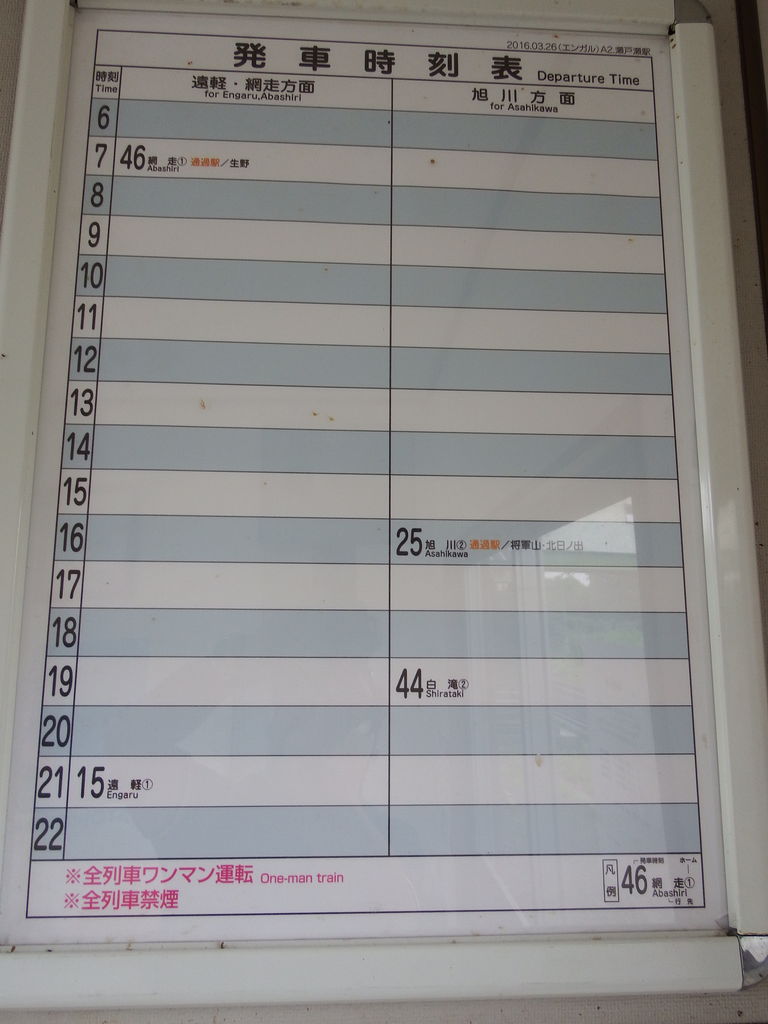 2016.03.26(エンガル)A2.瀬戸瀬駅
発車時刻表 Departure Time
時刻 Time
遠軽・網走方面
for Engaru,Abashiri
旭川方面
for Asahikawa
6
7 46 網走① 通過駅／生野
Abashiri
8
9
10
11
12
13
14
15
16 25 旭川② 通過駅／将軍山・北日ノ出
Asahikawa
17
18
19 44 白滝②
Shirataki
20
21 15 遠軽①
Engaru
22
※全列車ワンマン運転 One-man train
※全列車禁煙
凡例
発車時刻 ホーム
46 網走①
Abashiri
行先